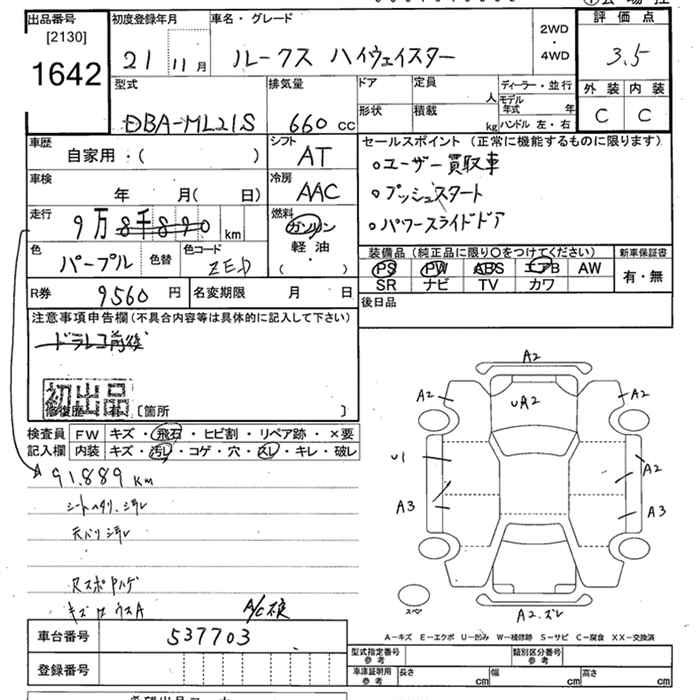 出品番号
[2130]
1642
初度登録年月
21 11月
車名・グレード
ルークス ハイウェイスター
2WD
・
4WD
評価点
3.5
外装 内装
C C
型式
DBA-ML21S
排気量
660 cc
ドア
定員
人
形状
積載
kg
ディーラー・並行
モデル年式 年
ハンドル 左・右
車歴
自家用・( )
シフト
AT
車検
年 月( 日)
冷房
AAC
走行
9万8千890 km
燃料
ガソリン
軽油
・
( )
色
パープル
色替
色コード
ZED
R券
9560 円
名変期限 月 日
セールスポイント(正常に機能するものに限ります)
○ユーザー買取車
○プッシュスタート
○パワースライドドア
装備品(純正品に限り○をつけてください)
PS PW ABS エアB AW
SR ナビ TV カワ
新車保証書
有・無
後日品
注意事項申告欄(不具合内容等は具体的に記入して下さい)
ドラレコ前後
初出品
修復歴 有 [箇所 ]
検査員
記入欄
FW キズ・飛石・ヒビ割・リペア跡・×要
内装 キズ・汚レ・コゲ・穴・スレ・キレ・破レ
91.889 Km
天バリ
A/C
車台番号
537703
登録番号
A2
A2
A2
UA2
U1
A2
A3
A3
スペア
A2.ズレ
A-キズ E-エクボ U-凹み W-補修跡 S-サビ C-腐食 XX-交換済
型式指定番号
参考
類別区分番号
参考
車庫証明用
参考
長さ cm
幅 cm
高さ cm